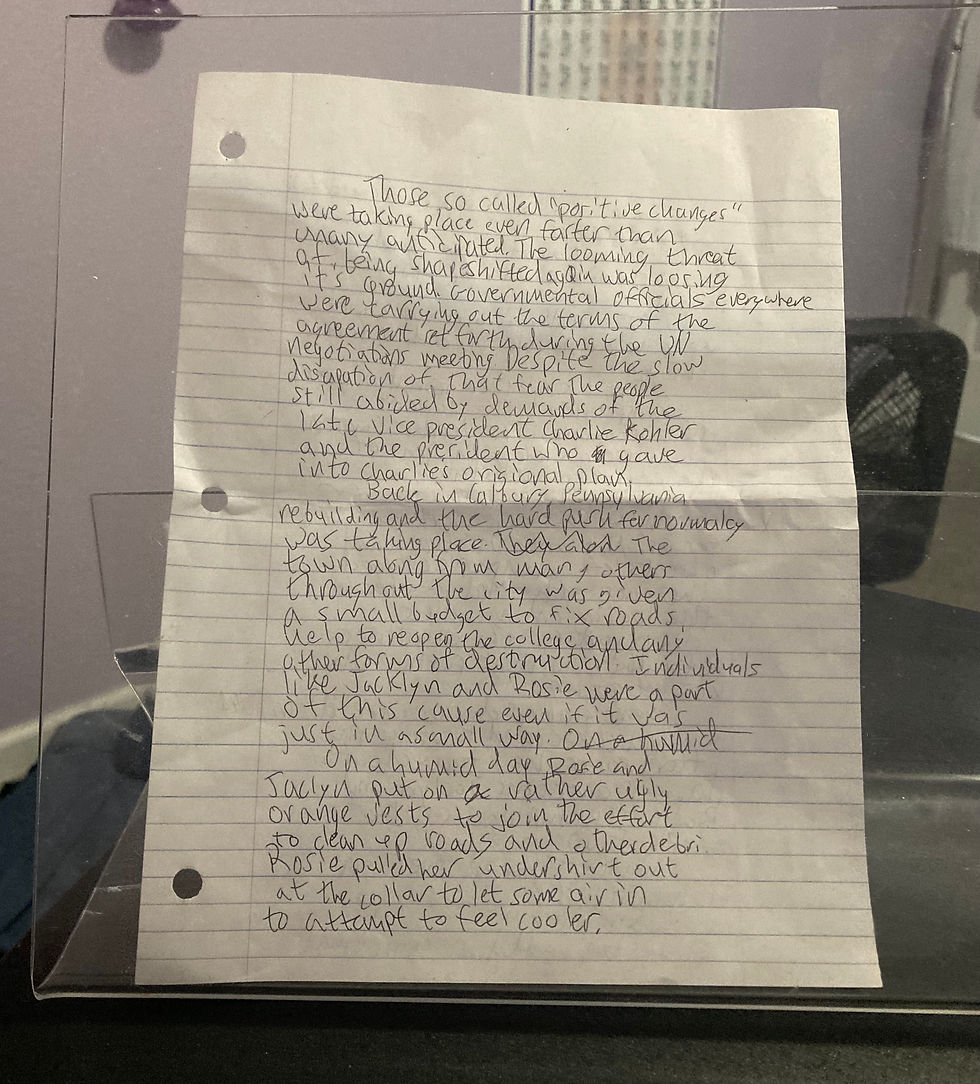 Those so called "positive changes"
were taking place even faster than
many anticipated. The looming threat
of being shapeshifted again was loosing
it's ground. Governmental officials everywhere
were carrying out the terms of the
agreement set forth during the UN
negotiations meeting Despite the slow
disapation of that fear the people
still abided by demands of the
late vice president Charlie Kohler
and the president who gave
into Charlies origional plan.
Back in Pennsylvania
rebuilding and the hard push for normalcy
was taking place. The
town along from many others
throughout the city was given
a small budget to fix roads,
help to reopen the college, and any
other forms of destruction. Individuals
like Jacklyn and Rosie were a part
of this cause even if it was
just in a small way. On a humid
On a humid day Rose and
Jaclyn put on a rather ugly
orange vests to join the effort
to clean up roads and other debri
Rosie pulled her undershirt out
at the collar to let some air in
to attampt to feel cooler.